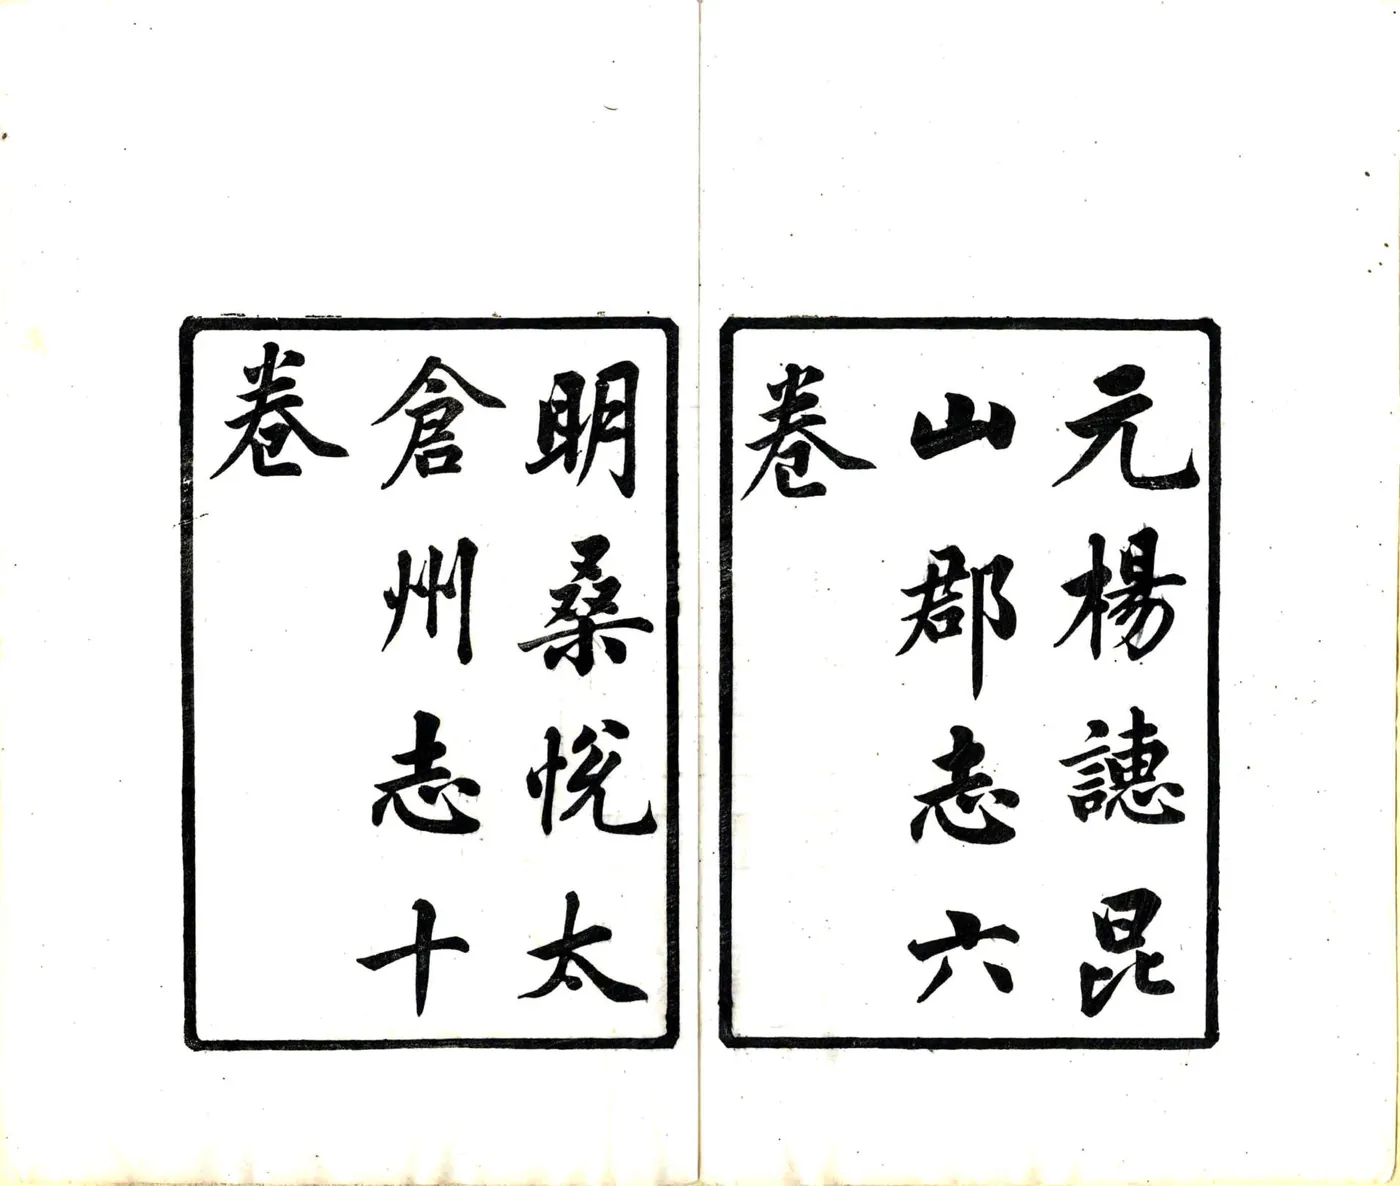 元楊譓昆
山郡志六
卷
明桑悅太
倉州志十
卷